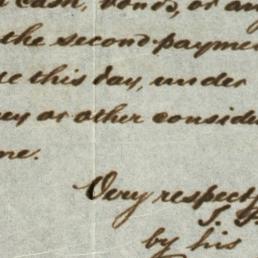 cash, bonds, or any
the second payme
this day, under
or other conside
me.
Very respect
by his